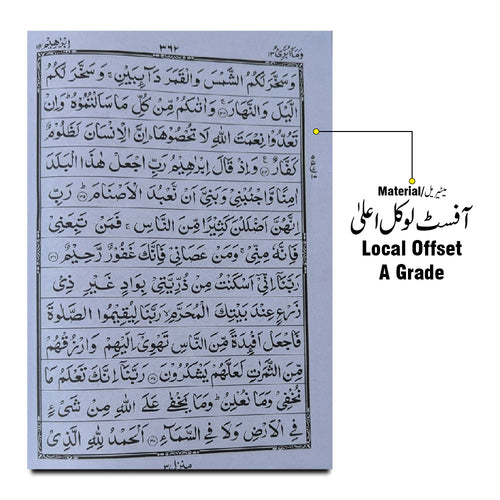 وَمَا اُبَرِّئُ ١٣ ٣٦٢ اِبْرٰهِيْم ١٤
وَسَخَّرَ لَكُمُ الشَّمْسَ وَالْقَمَرَ دَآئِبَيْنِ ۚ وَسَخَّرَ لَكُمُ
الَّيْلَ وَالنَّهَارَ ۚ﴿٣٣﴾ وَاٰتٰىكُمْ مِّنْ كُلِّ مَا سَاَلْتُمُوْهُ ؕ وَاِنْ
تَعُدُّوْا نِعْمَتَ اللّٰهِ لَا تُحْصُوْهَا ؕ اِنَّ الْاِنْسَانَ لَظَلُوْمٌ
كَفَّارٌ ﴿٣٤﴾ وَاِذْ قَالَ اِبْرٰهِيْمُ رَبِّ اجْعَلْ هٰذَا الْبَلَدَ
اٰمِنًا وَّاجْنُبْنِيْ وَبَنِيَّ اَنْ نَّعْبُدَ الْاَصْنَامَ ؕ﴿٣٥﴾ رَبِّ
اِنَّهُنَّ اَضْلَلْنَ كَثِيْرًا مِّنَ النَّاسِ ۚ فَمَنْ تَبِعَنِيْ
فَاِنَّهٗ مِنِّيْ ۚ وَمَنْ عَصَانِيْ فَاِنَّكَ غَفُوْرٌ رَّحِيْمٌ ﴿٣٦﴾
رَبَّنَاۤ اِنِّيْۤ اَسْكَنْتُ مِنْ ذُرِّيَّتِيْ بِوَادٍ غَيْرِ ذِيْ
زَرْعٍ عِنْدَ بَيْتِكَ الْمُحَرَّمِ ۙ رَبَّنَا لِيُقِيْمُوا الصَّلٰوةَ
فَاجْعَلْ اَفْـِٕدَةً مِّنَ النَّاسِ تَهْوِيْۤ اِلَيْهِمْ وَارْزُقْهُمْ
مِّنَ الثَّمَرٰتِ لَعَلَّهُمْ يَشْكُرُوْنَ ﴿٣٧﴾ رَبَّنَاۤ اِنَّكَ تَعْلَمُ مَا
نُخْفِيْ وَمَا نُعْلِنُ ؕ وَمَا يَخْفٰى عَلَى اللّٰهِ مِنْ شَيْءٍ
فِي الْاَرْضِ وَلَا فِي السَّمَآءِ ﴿٣٨﴾ اَلْحَمْدُ لِلّٰهِ الَّذِيْ
منزل ٣
Material/میٹیریل
آفسٹ لوکل اعلیٰ
Local Offset
A Grade